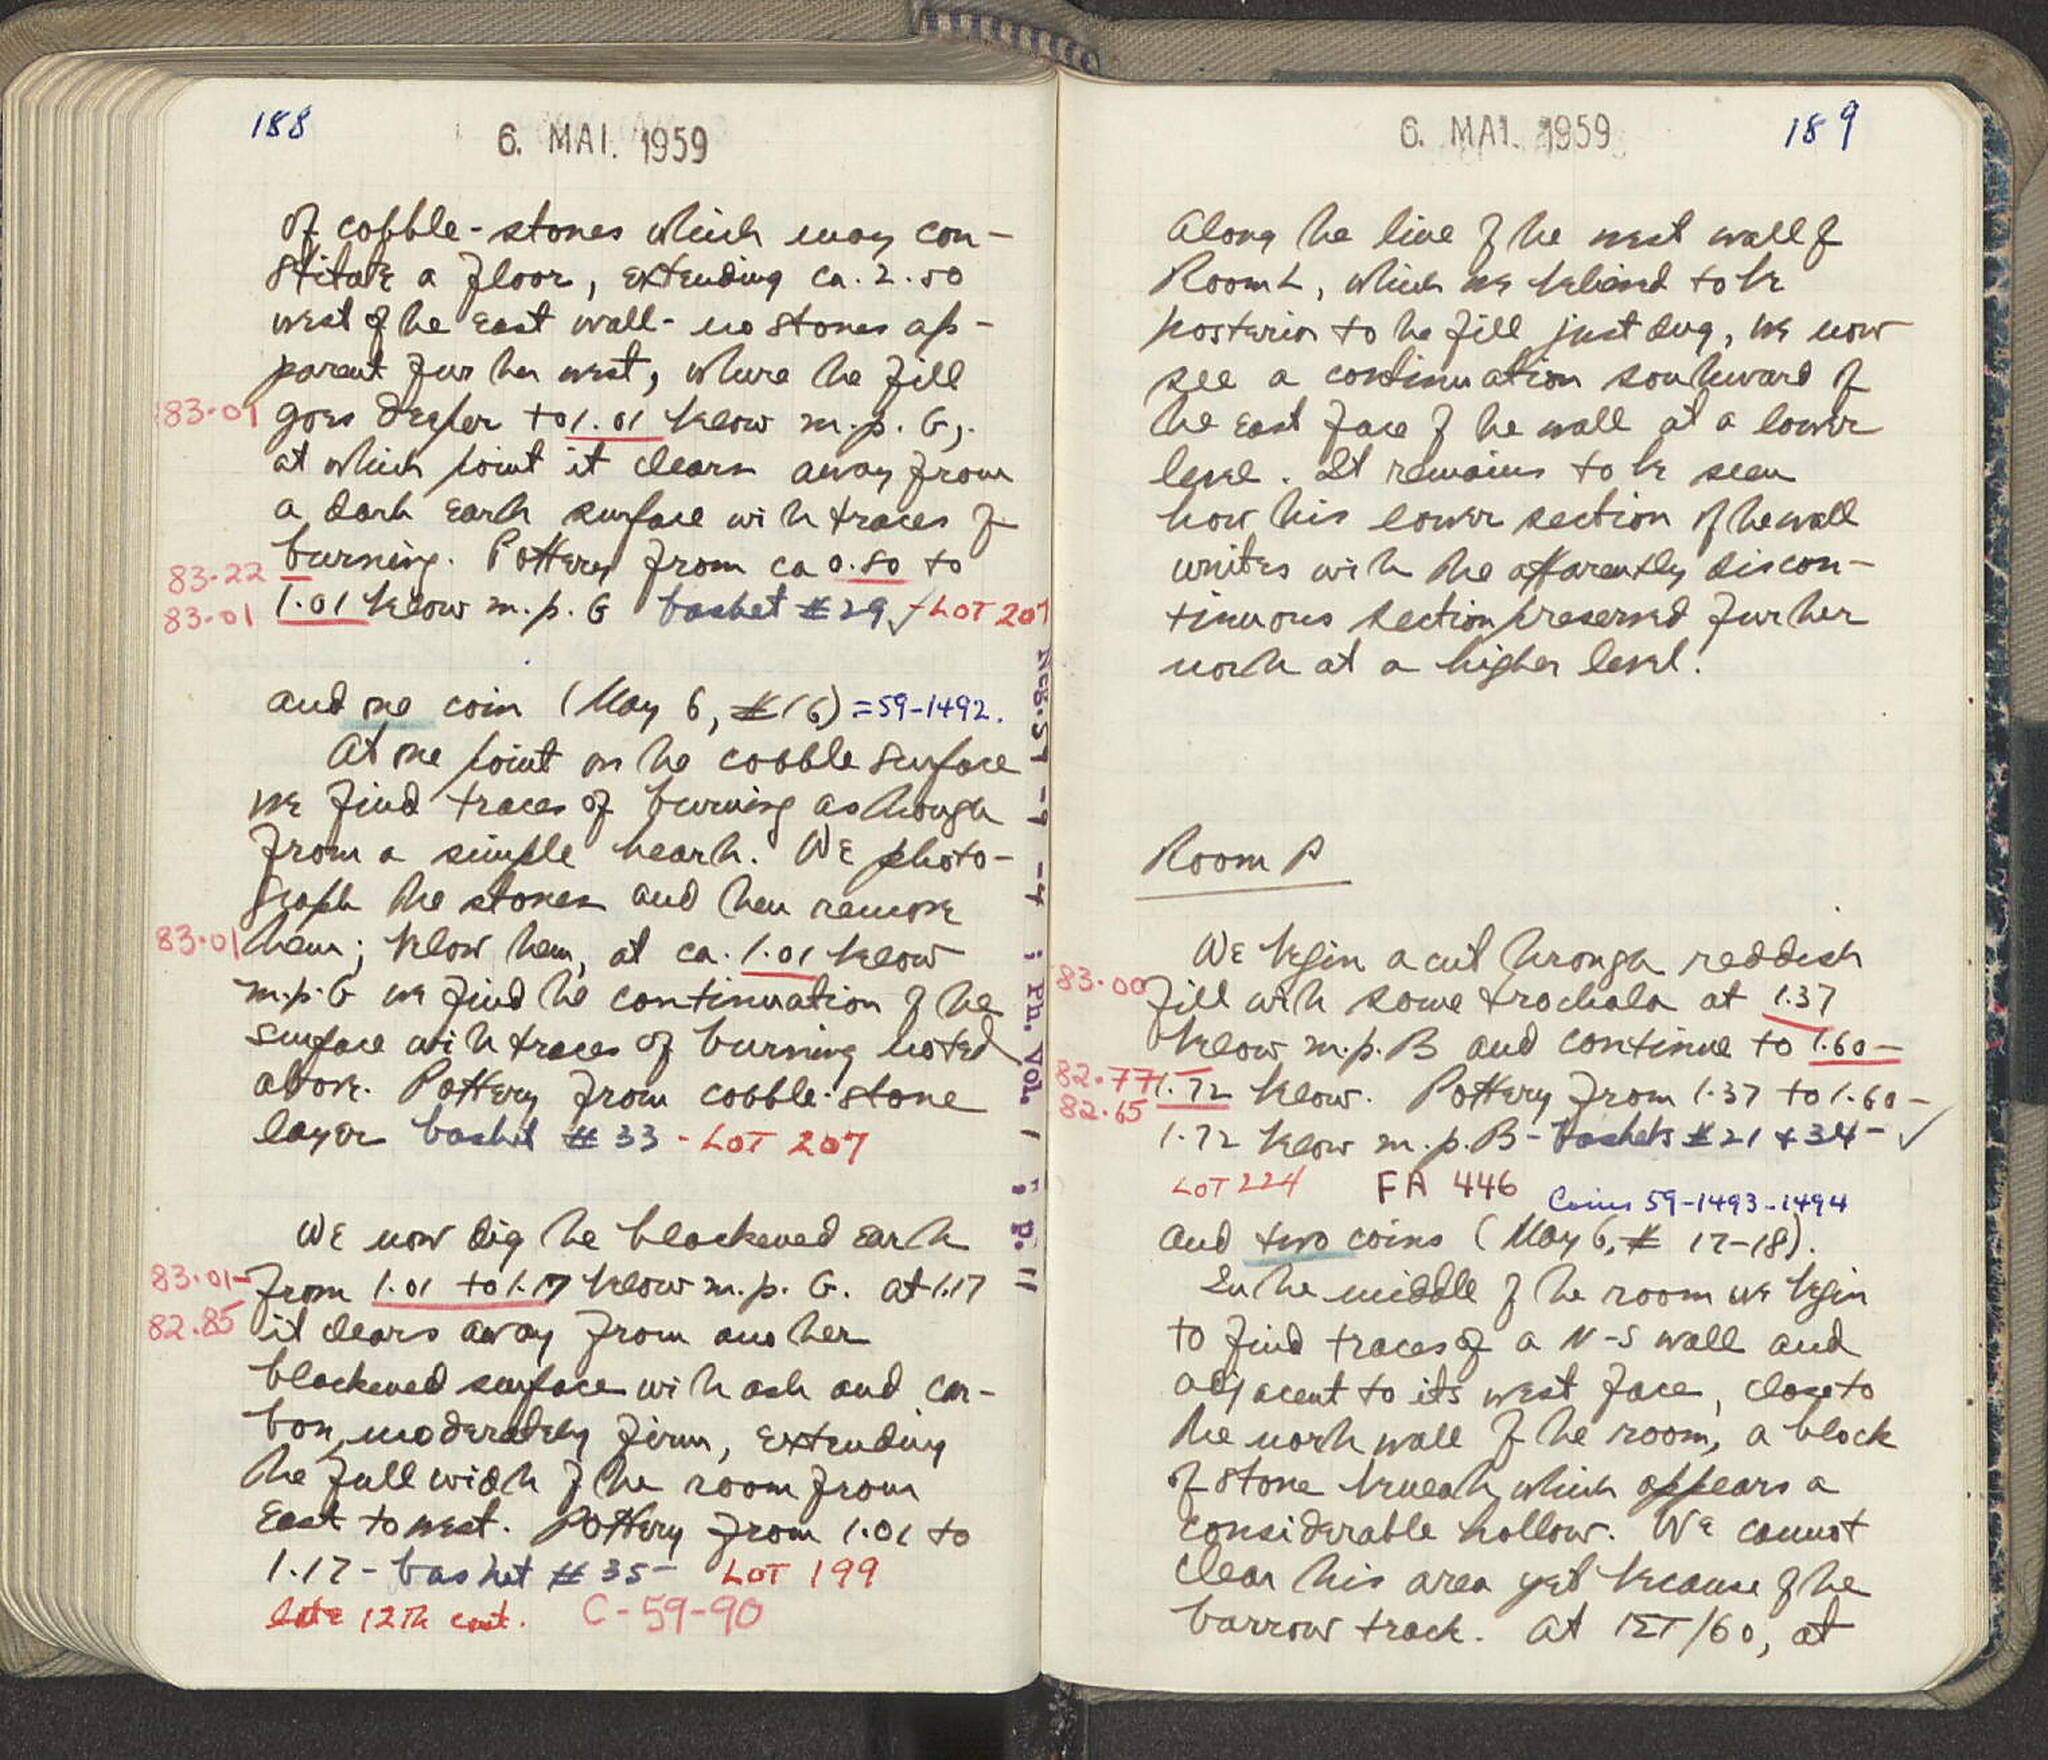 188
6. MAI. 1959
of cobble-stones which may con-
stitute a floor, extending ca. 2.50
west of the east wall - no stones ap-
parent further west, where the fill
83.01 goes deeper to 1.01 below m.p. G,
at which point it clears away from
a dark earth surface with traces of
83.22 burning. Pottery from ca 0.80 to
83.01 1.01 below m.p. G basket #29 ✓ - LOT 207
and one coin (May 6, #16) = 59-1492.
At one point on the cobble surface
we find traces of burning as though
from a simple hearth. We photo-
graph the stones and then remove
83.01 them; below them, at ca. 1.01 below
m.p. G we find the continuation of the
surface with traces of burning noted
above. Pottery from cobble-stone
layer basket #33 - LOT 207
We now dig the blackened earth
83.01- from 1.01 to 1.17 below m.p. G. At 1.17
82.85 it clears away from another
blackened surface with ash and car-
bon, moderately firm, extending
the full width of the room from
east to west. Pottery from 1.01 to
1.17 - basket #35 - LOT 199
late 12th cent. C-59-90
Neg. 59-9-4; Ph. Vol. 1; p. 11
6. MAI. 1959
189
Along the line of the west wall of
Room L, which we believed to be
posterior to the fill just dug, we now
see a continuation southward of
the east face of the wall at a lower
level. It remains to be seen
how this lower section of the wall
unites with the apparently discon-
tinuous section preserved further
north at a higher level.
Room P
We begin a cut through reddish
83.00 fill with some trochala at 1.37
below m.p. B and continue to 1.60-
82.77 1.72 below. Pottery from 1.37 to 1.60-
82.65
1.72 below m.p. B - baskets #21 + 34 - ✓
LOT 224 FA 446 Coins 59-1493-1494
and two coins (May 6, # 17-18).
In the middle of the room we begin
to find traces of a N-S wall and
adjacent to its west face, close to
the north wall of the room, a block
of stone beneath which appears a
considerable hollow. We cannot
clear this area yet because of the
barrow track. At ΙΣΤ/60, at